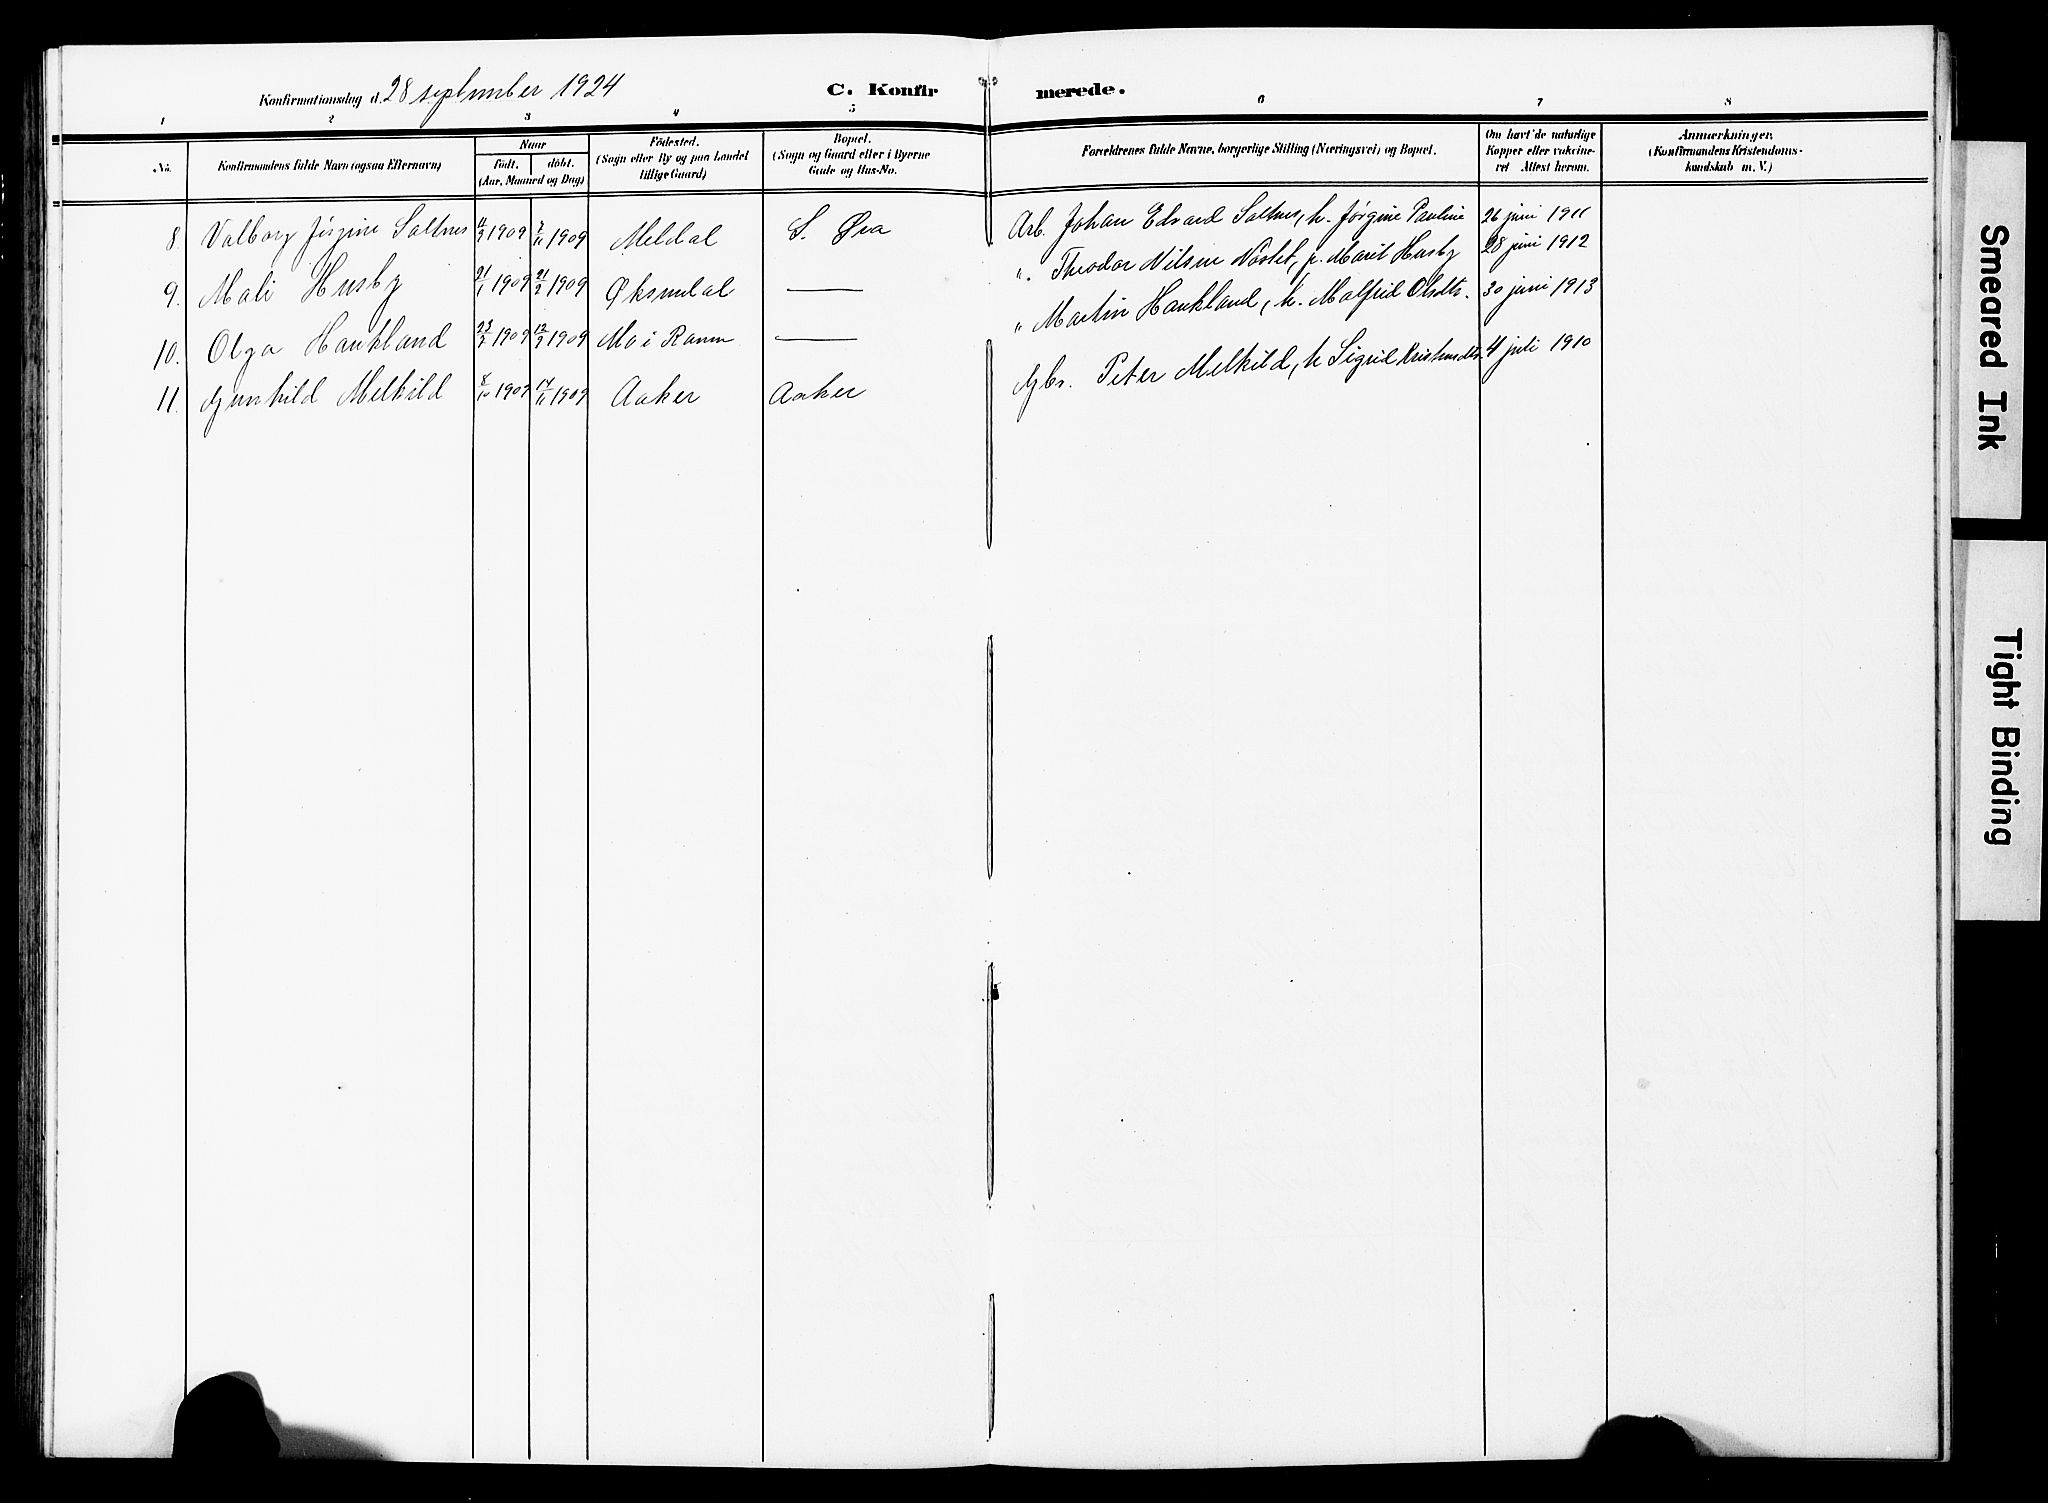 Konfirmationsdag d. 28 september 1924
C. Konfirmerede.
1 2 3 4 5 6 7 8
No.
Konfirmandens fulde Navn (ogsaa Efternavn)
Naar
født. døbt.
(Aar, Maaned og Dag)
Fødested.
(Sogn eller By og paa Landet
tillige Gaard)
Bopæl.
(Sogn og Gaard eller i Byerne
Gade og Hus-No.
Forældrenes fulde Navne, borgerlige Stilling (Næringsvei) og Bopæl.
Om havt de naturlige
Kopper eller vakcine-
ret Attest herom.
Anmærkninger.
(Konfirmandens Kristendoms-
kundskab m. V.)
8. Valborg Jørgine Saltnes 1909 1909 Meldal S. Øra Arb. Johan Edvard Saltnes, h. Jørgine Pauline 26 juni 1911
9. Mali Husby 21/1 1909 21/2 1909 Øksendal — " Theodor Nilsen Nastet, p. Marit Husby 28 juni 1912
10. Olga Haukland 23/2 1909 12/9 1909 Mo i Ranen — " Martin Haukland, h. Malfrid Olsdtr. 30 juni 1913
11. Gunhild Melkild 8/10 1909 14/11 1909 Aaker Aaker Gbr. Peter Melkild, h Sigrid Kristensdtr. 4 juli 1910
Smeared Ink
Tight Binding